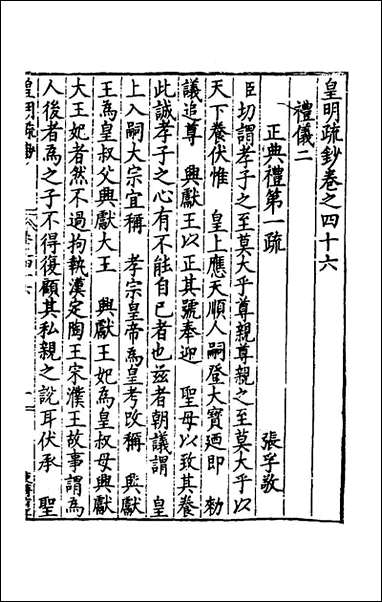 皇明疏鈔卷之四十六
禮儀二
正典禮第一疏 張孚敬
臣切謂孝子之至莫大乎尊親尊親之至莫大乎以
天下養伏惟 皇上應天順人嗣登大寶廼即 勑
議追尊 興獻王以正其號奉迎 聖母以致其養
此誠孝子之心有不能自已者也茲者朝議謂 皇
上入嗣大宗宜稱 孝宗皇帝爲皇考改稱 興獻
王爲皇叔父興獻大王 興獻王妃爲皇叔母興獻
大王妃者然不過拘執漢定陶王宋濮王故事謂爲
人後者爲之子不得復顧其私親之說耳伏承 聖
皇明疏鈔